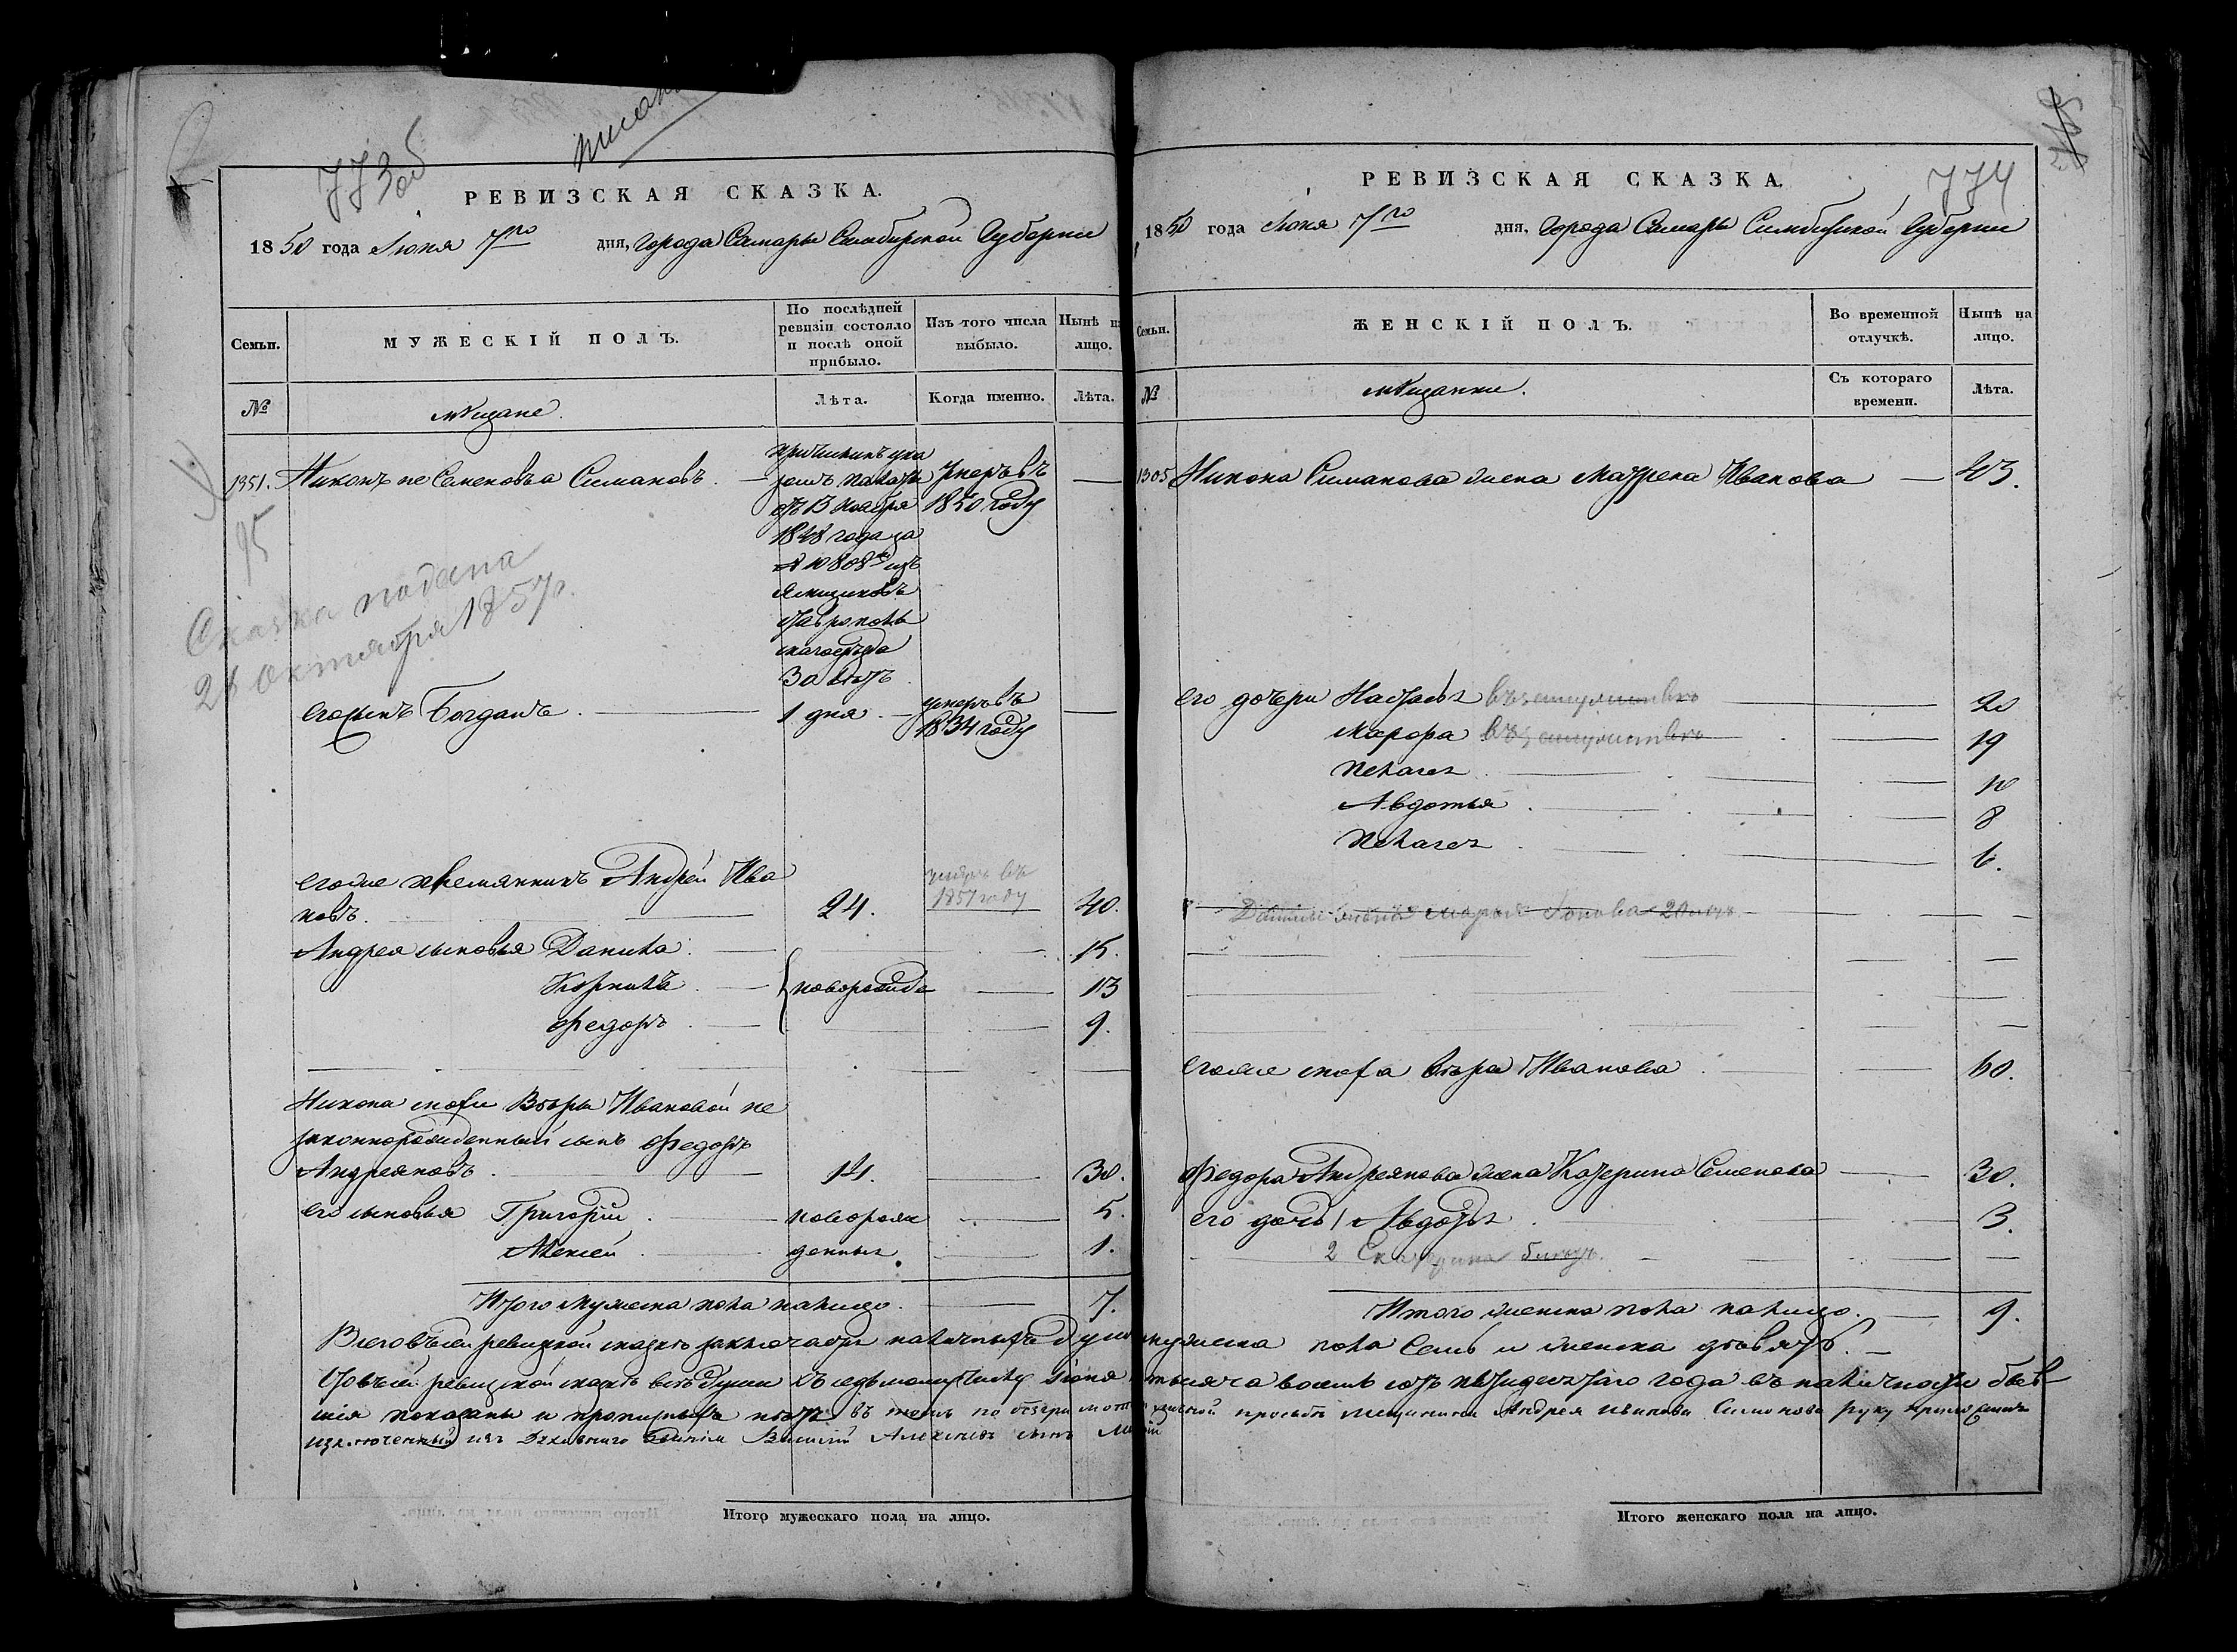 773об
РЕВИЗСКАЯ СКАЗКА.
1850 года Июня 7го дня, Города Самары Симбирской Губернии
Семьи.
МУЖЕСКІЙ ПОЛЪ.
По послѣдней ревизіи состояло и послѣ оной прибыло.
Изъ того числа выбыло.
Нынѣ на лицо.
№
мѣщане.
Лѣта.
Когда именно.
Лѣта.
1351. Никонъ Семеновъ Симаковъ.
причисленъ ука
зомъ палаты
отъ 13 Ноября
1848 года за
№ 10808м изъ
ямщиковъ
Ставрополь
скаго уѣзда
30 лѣтъ
Умеръ въ
1850 году
95
Сказка подана
28 Октября 1857г.
его сынъ Богданъ. 1 дня. умеръ въ
1834 году
его же племянникъ Андрей Ива
новъ. 24. 40.
умеръ въ
1857 году
Андрея сыновья Данила 15.
Корнилъ новорожде 13
Федоръ 9.
Никона снохи Вѣры Ивановой не
законнорожденный сынъ Федоръ
Андреяновъ 14. 30.
его сыновья Григорій новорож 5.
Алексей денные 1.
Итого мужеска пола налицо. 7.
774
РЕВИЗСКАЯ СКАЗКА.
1850 года Июня 7го дня, Города Самары Симбирской Губернии
Семьи.
ЖЕНСКІЙ ПОЛЪ.
Во временной отлучкѣ.
Нынѣ на лицо.
№
мѣщанки.
Съ котораго времени.
Лѣта.
1305 Никона Симакова жена Матрена Иванова 43.
его дочери Настасья въ замужствѣ 20
Марфа въ замужствѣ 19
Пелагея 10
Авдотья 8
Пелагея 6.
Данилы жена Марья 20 лѣтъ
его же сноха Вѣра Иванова 60.
Федора Андреянова жена Катерина Семенова 30.
его дочь 1 Авдотья 3.
2 Екатерина
Итого женска пола налицо. 9.
Всего въ сей ревизской сказкѣ заключается наличныхъ душъ мужеска пола семь и женска девять.
Что въ сей ревизской сказкѣ всѣ души къ седьмому числу Іюня тысяча восемь сотъ пятидесятаго года въ наличности быв
шія показаны и прописныхъ нѣтъ въ томъ просьбѣ мещанина Андрея Иванова Симакова руку приложилъ
изключенный изъ Духовнаго Званія Василій Алексѣевъ сынъ
Итого мужескаго пола на лицо.
Итого женскаго пола на лицо.